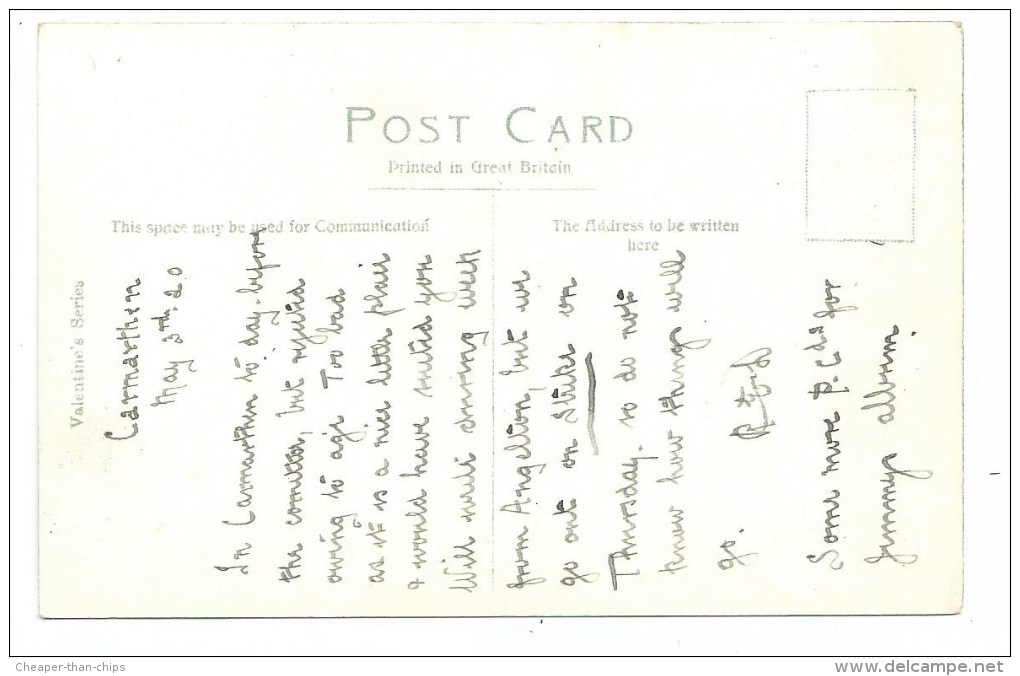 POST CARD
Printed in Great Britain
This space may be used for Communication
The Address to be written
here
Valentine's Series
Carmarthen
May 3rd. 20
In Carmarthen to day. before
the comittee, but rejected
owing to age. Too bad
as it is a nice little place
& would have suited you
Will write during week
from Angelton, but we
go out on Strike on
Thursday. so do not
know how things will
go.
Some more P.Cds for
Jimmys album.
Cheaper-than-chips
www.delcampe.net